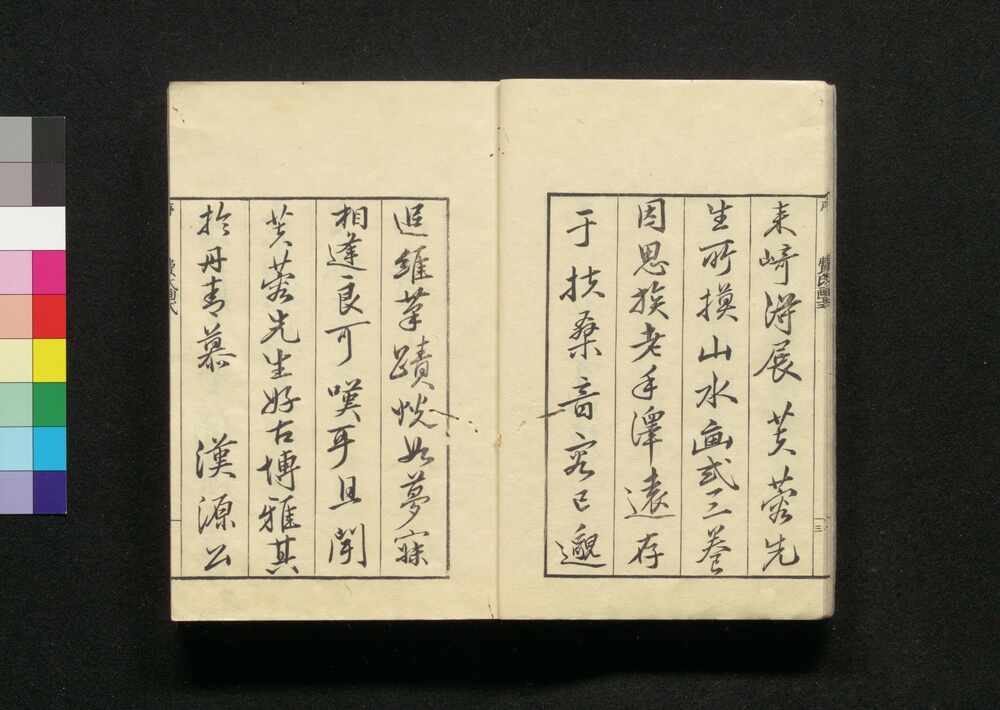 来崎得展芙蓉先
生所摸山水画式三巻
因思族老手澤遠存
于扶桑音容已邈
追維筆蹟恍如夢寐
相逢良可嘆耳且聞
芙蓉先生好古博雅其
於丹青慕漢源公